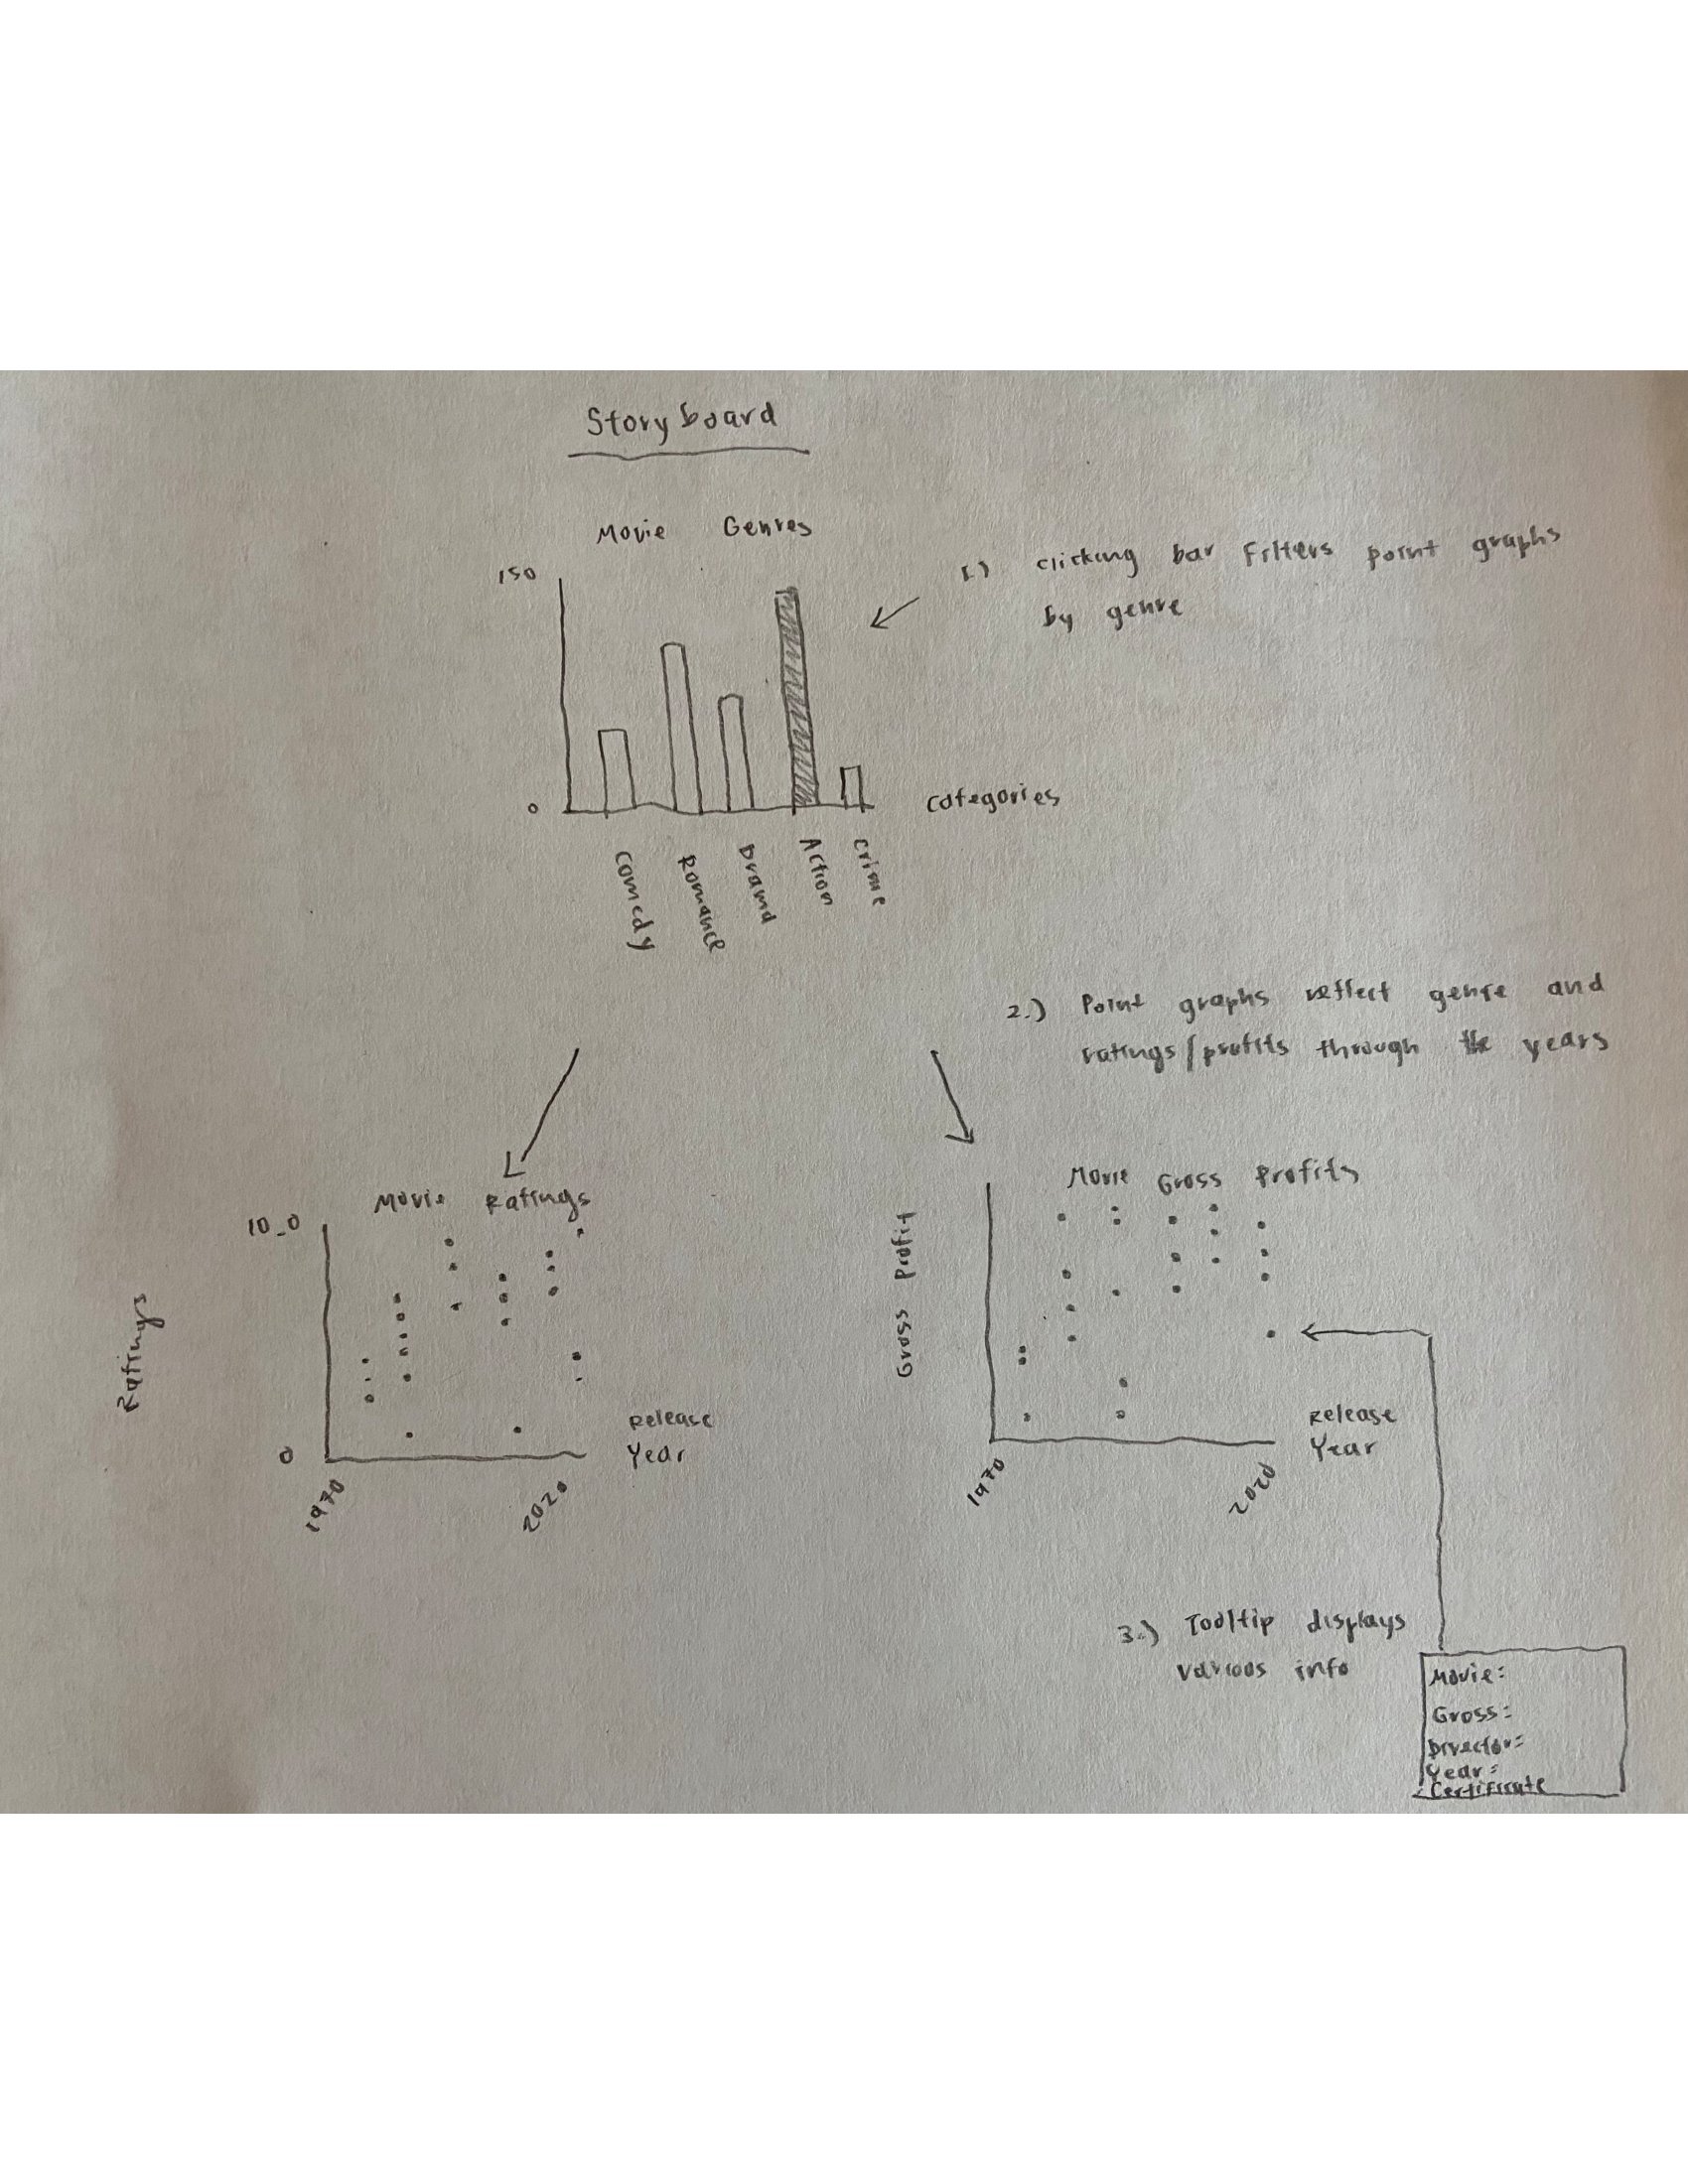 Storyboard
Movie Genres
150
0
Comedy
Romance
Drama
Action
Crime
Categories
1.) Clicking bar filters point graphs
by genre
2.) Point graphs reflect genre and
ratings/profits through the years
Movie Ratings
10.0
0
Ratings
1970
2020
Release
Year
Movie Gross Profits
Gross Profit
1970
2020
Release
Year
3.) Tooltip displays
various info
Movie:
Gross:
Director:
Year:
Certificate